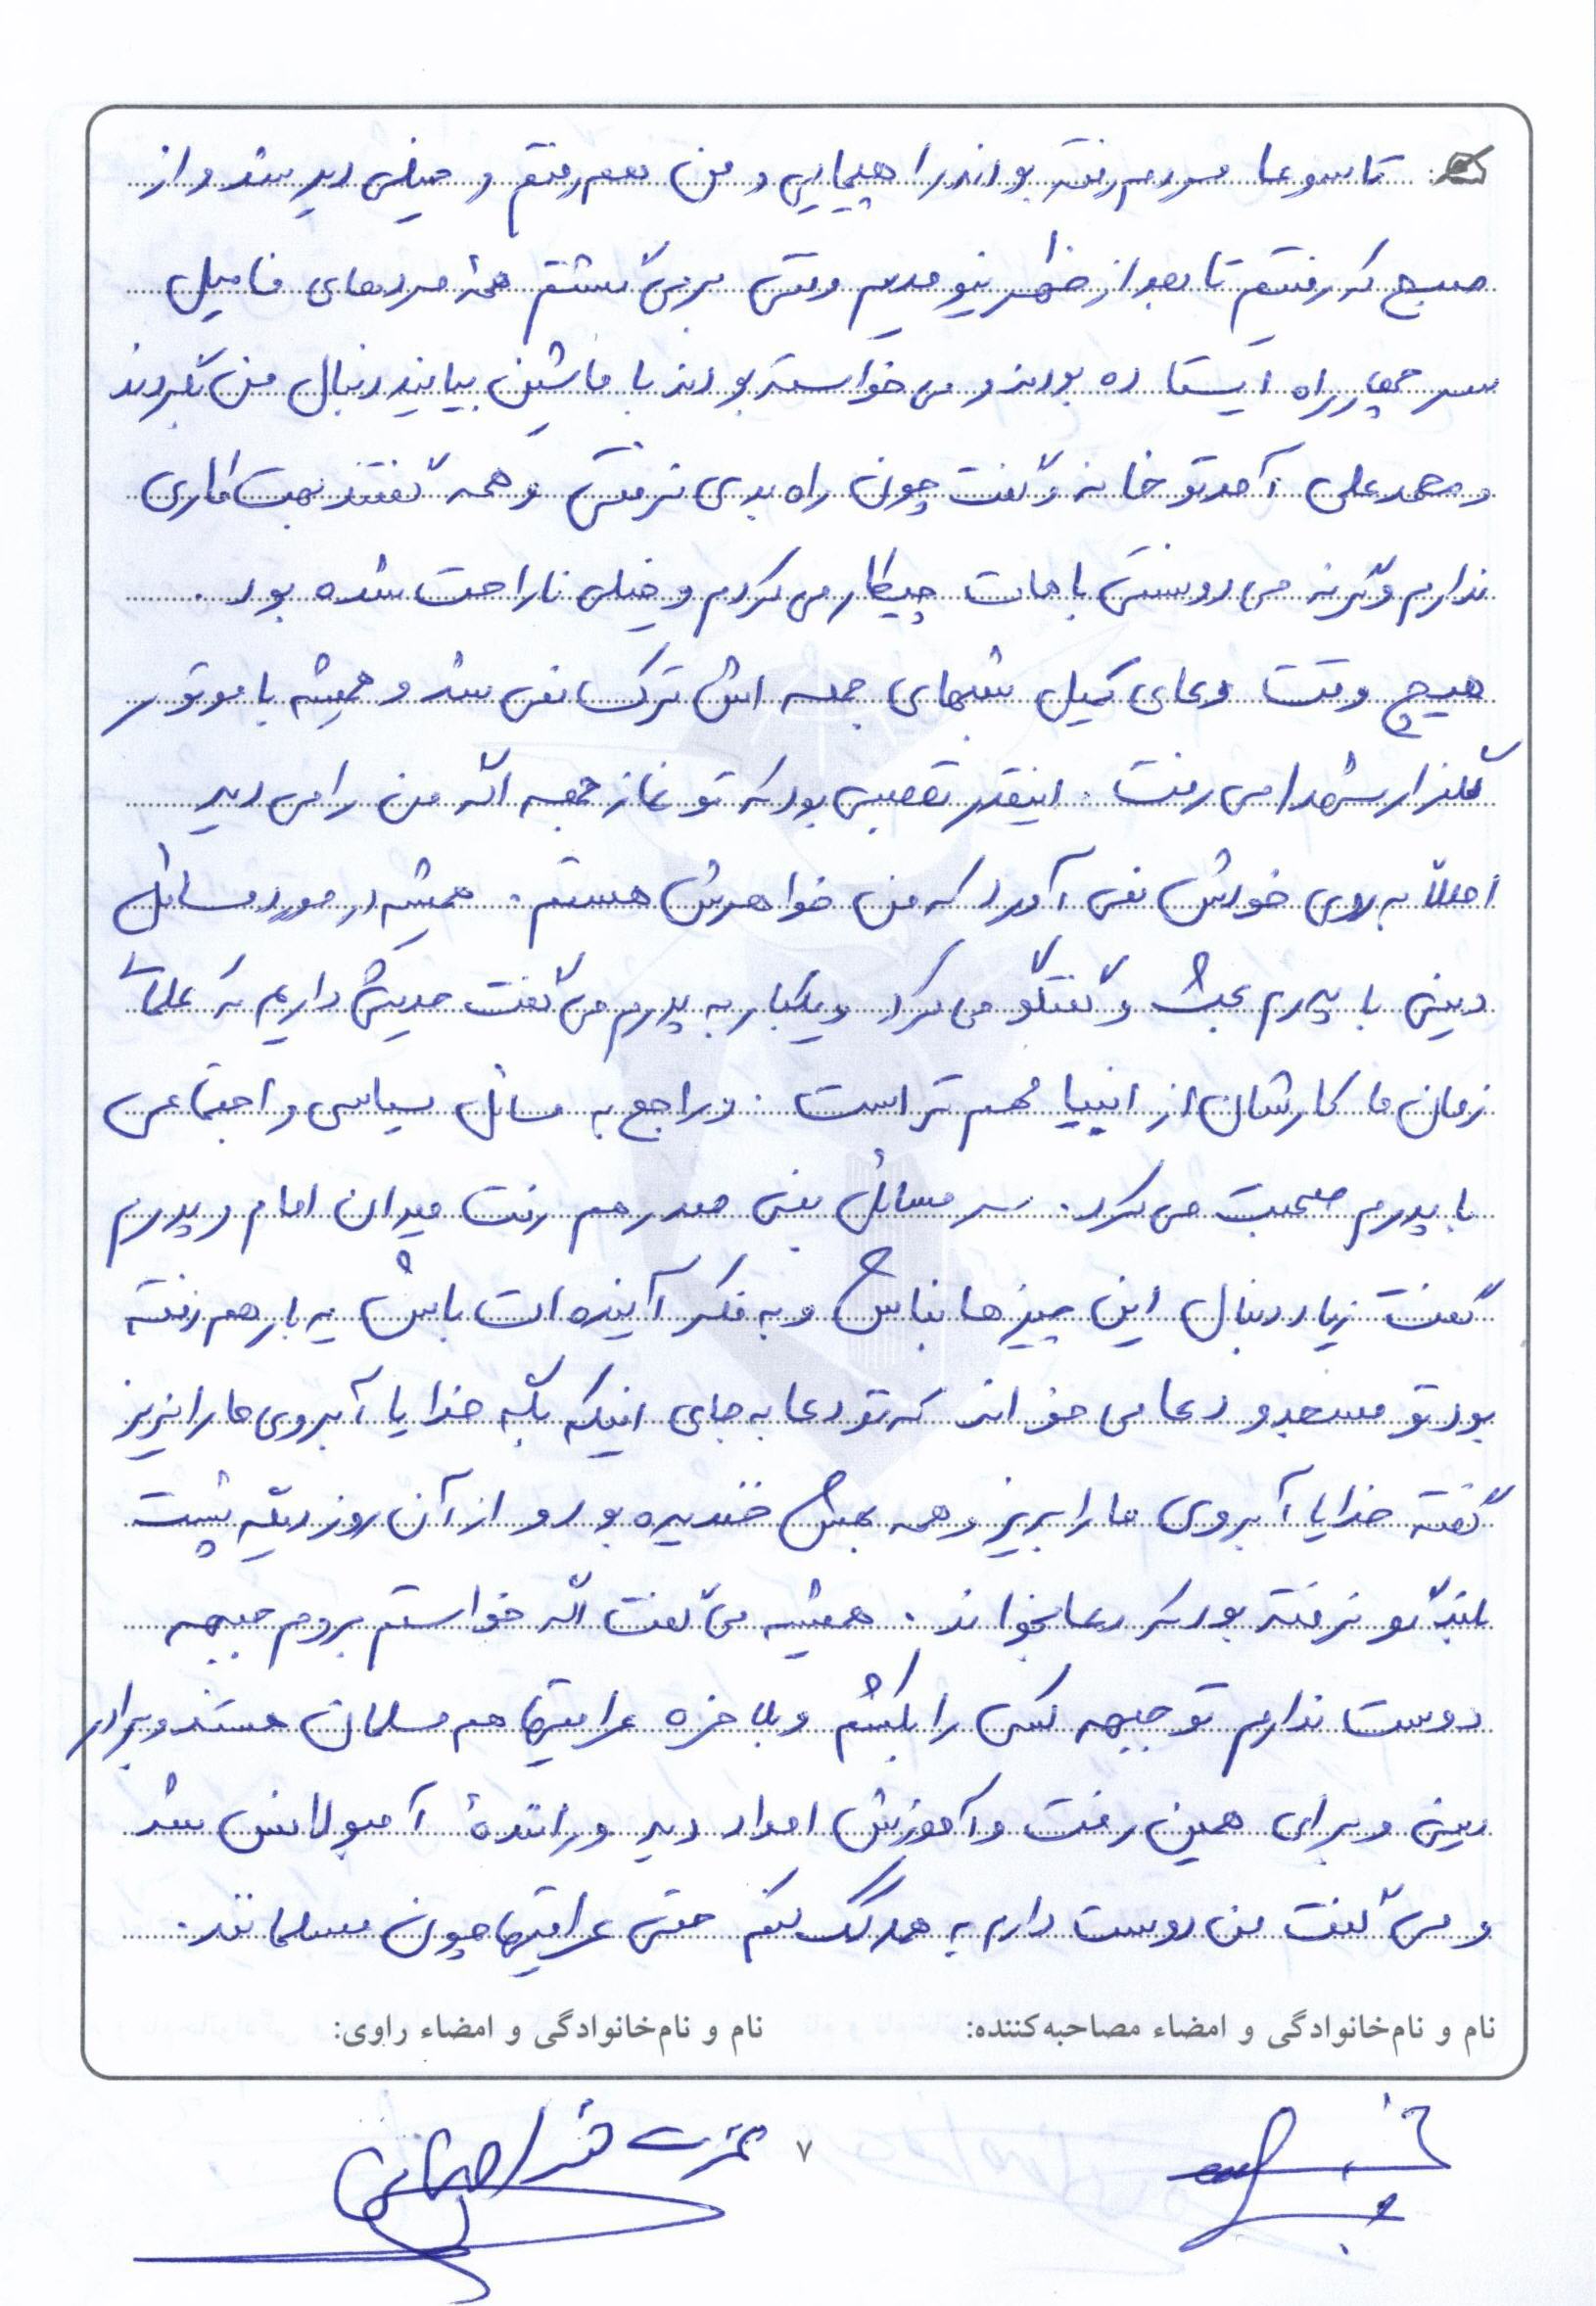 تاسوعا مردم رفته بودند راهپیمایی و من هم رفتم و خیلی دیر شد و از
صبح که رفتیم تا بعد از ظهر نیومدیم وقتی برمی‌گشتم همهٔ مردهای فامیل
سر چهارراه ایستاده بودند و می‌خواستند با ماشین بیایند دنبال من بگردند
و محمدعلی آمد تو خانه و گفت چون راه بدی نرفتی و همه گفتند بهت کاری
ندارم وگرنه می‌دونستی باهات چیکار می‌کردم و خیلی ناراحت شده بود.
هیچ وقت دعای کمیل شبهای جمعه اش ترک نمی‌شد و همیشه با موتور
گلزار شهدا می‌رفت. اینقدر تعصبی بود که تو نماز جمعه اگه من را می‌دید
اصلاً به روی خودش نمی‌آورد که من خواهرش هستم. همیشه در مورد مسائل
دینی با پدرم بحث و گفتگو می‌کرد و یکبار به پدرم می‌گفت حدیثی داریم که علمای
زمان ما کارشان از انبیا مهم تر است. و راجع به مسائل سیاسی و اجتماعی
با پدرم صحبت می‌کرد. سر مسائل بنی صدر هم رفت میدان امام و پدرم
گفت زیاد دنبال این چیزها نباش و به فکر آینده ات باش یه بار هم رفته
بود تو مسجد و دعا می‌خواند که تو دعا به جای اینکه بگه خدایا آبروی ما را نریز
گفته خدایا آبروی ما را بریز و همه بهش خندیده بود و از آن روز دیگه پشت
بلندگو نرفته بود که دعا بخواند. همیشه می‌گفت اگه خواستم بروم جبهه
دوست ندارم تو جبهه کسی را بکشم و بلاخره عراقیها هم مسلمان هستند و برادر
دینی و برای همین رفت و آموزش امداد دید و رانندهٔ آمبولانس شد
و می‌گفت من دوست دارم به همه کمک کنم حتی عراقیها چون مسلمانند.
نام و نام‌خانوادگی و امضاء مصاحبه‌کننده: نام و نام‌خانوادگی و امضاء راوی:
۷